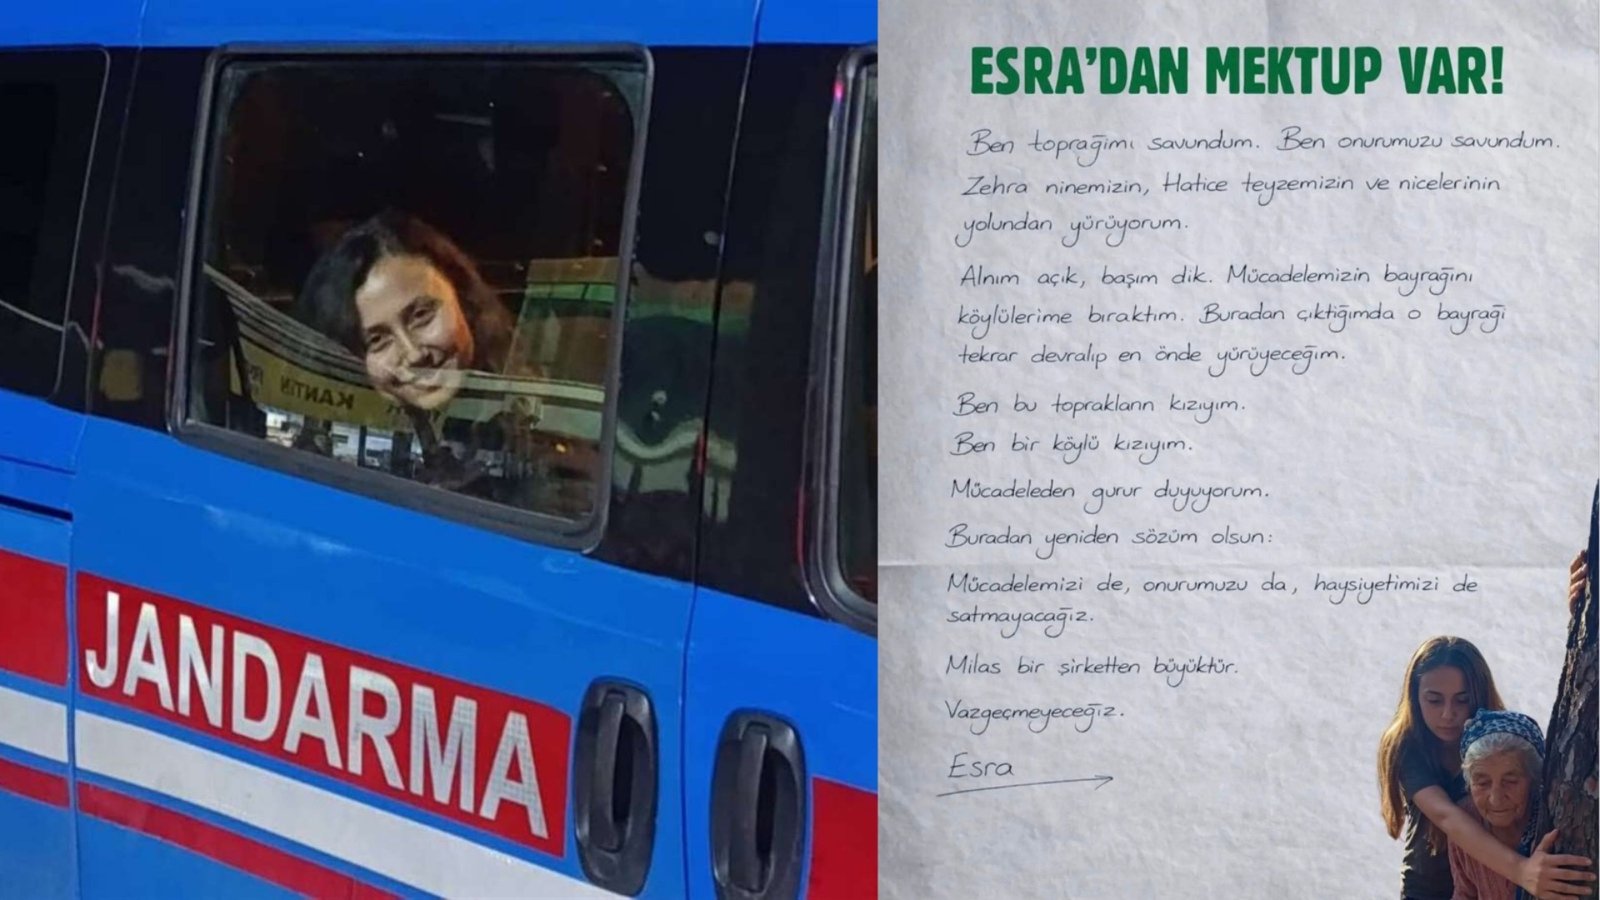 KANTİN
JANDARMA
ESRA'DAN MEKTUP VAR!
Ben toprağımı savundum. Ben onurumuzu savundum.
Zehra ninemizin, Hatice teyzemizin ve nicelerinin
yolundan yürüyorum.
Alnım açık, başım dik. Mücadelemizin bayrağını
köylülerime bıraktım. Buradan çıktığımda o bayrağı
tekrar devralıp en önde yürüyeceğim.
Ben bu toprakların kızıyım.
Ben bir köylü kızıyım.
Mücadeleden gurur duyuyorum.
Buradan yeniden sözüm olsun:
Mücadelemizi de, onurumuzu da, haysiyetimizi de
satmayacağız.
Milas bir şirketten büyüktür.
Vazgeçmeyeceğiz.
Esra